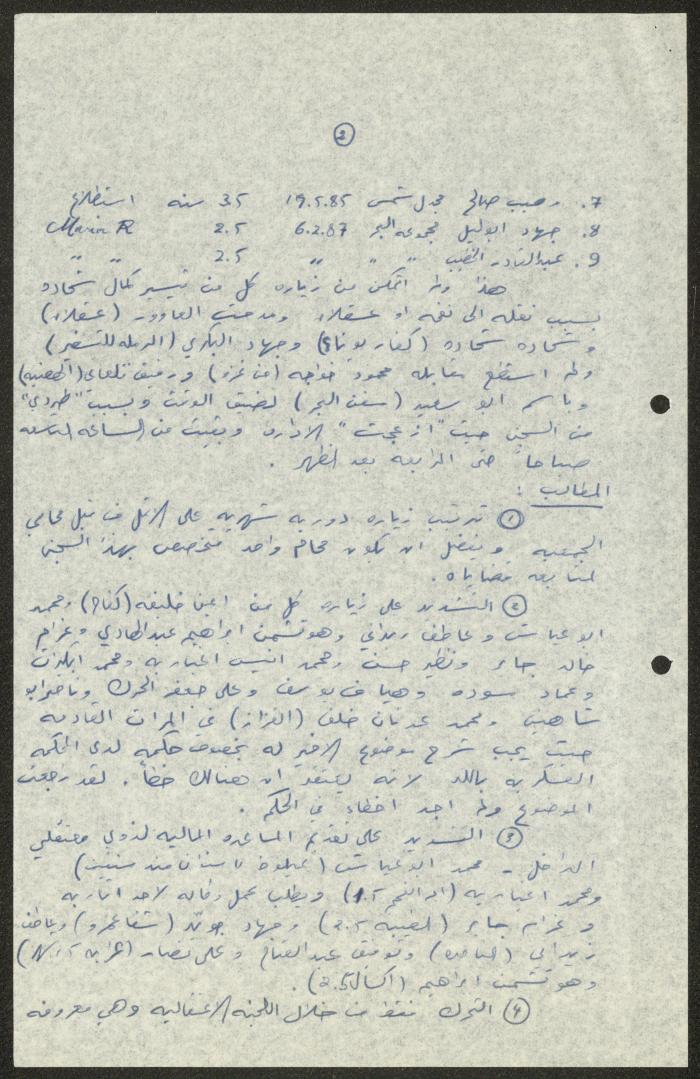 2
7. وهيب صالح مجدل شمس 19.5.85 3.5 سنه استطلاع
8. جهاد ابو ليل مجموعه البحر 6.2.87 2.5 Maria R
9. عبد القادر الخطيب " " " 2.5 " "
هذا ولم اتمكن من زياره كل من تيسير كمال شحاده
بسبب نقله الى نفحه او عسقلان ومدحت العاوور (عسقلان)
وشحاده شحاده (كفار يونا) وجهاد البكري (الرمله للتسفير)
ولم استطع مقابله محمود خواجه (من غزه) ورفيق تلعاني (الجعنيه)
وباسم ابو سعيد (سفن البحر) لضيق الوقت وبسبب "طردي"
من السجن حيث "ازعجت" الاداره وبقيت من الساعه التاسعه
صباحاً حتى الرابعه بعد الظهر.
المطالب:
1 ترتيب زياره دوريه شهريه على الاقل من قبل محامي
الجمعيه ويفضل ان تكون محام واحد متخصص بهذا السجن
لمتابعه قضاياه.
2 التشديد على زياره كل من امين خليفه (كناح) ومحمد
ابو عياش وعاطف زيداني وهوتشمن ابراهيم عبد الهادي وغرام
خالد جابر ونظير حسن ومحمد انيس اغباريه ومحمد
وعماد سوده وهياف يوسف وعلي جعفر الحرك وناصر ابو
شاهين ومحمد عدنان خلف (القزاز) في المرات القادمه
حيث يجب شرح موضوع الاخير له بخصوص حكمه لدى المحكمه
العسكريه باللد لانه يعتقد ان هنالك خطأ. لقد رجعت
الموضوع ولم اجد اخطاء في الحكم.
3 التشديد على تقديم المساعده الماليه لذوي معتقلي
الداخل - محمد ابو عياش (عيلوط منذ سنتين)
ومحمد اغباريه (ام الفحم 1.5) ويطلب عمل وكاله لاحد اقاربه
وغرام جابر (الطيبه 2.5) وجهاد (شفاعمرو) وعاطف
زيداني (الناصره) وتوفيق عبد الفتاح وعلي نصار (عرابه 1.5)
وهوتشمن ابراهيم (اكسال 2.5).
4 التحرك فقط من خلال اللجنه الاعتقاليه وهي معروفه